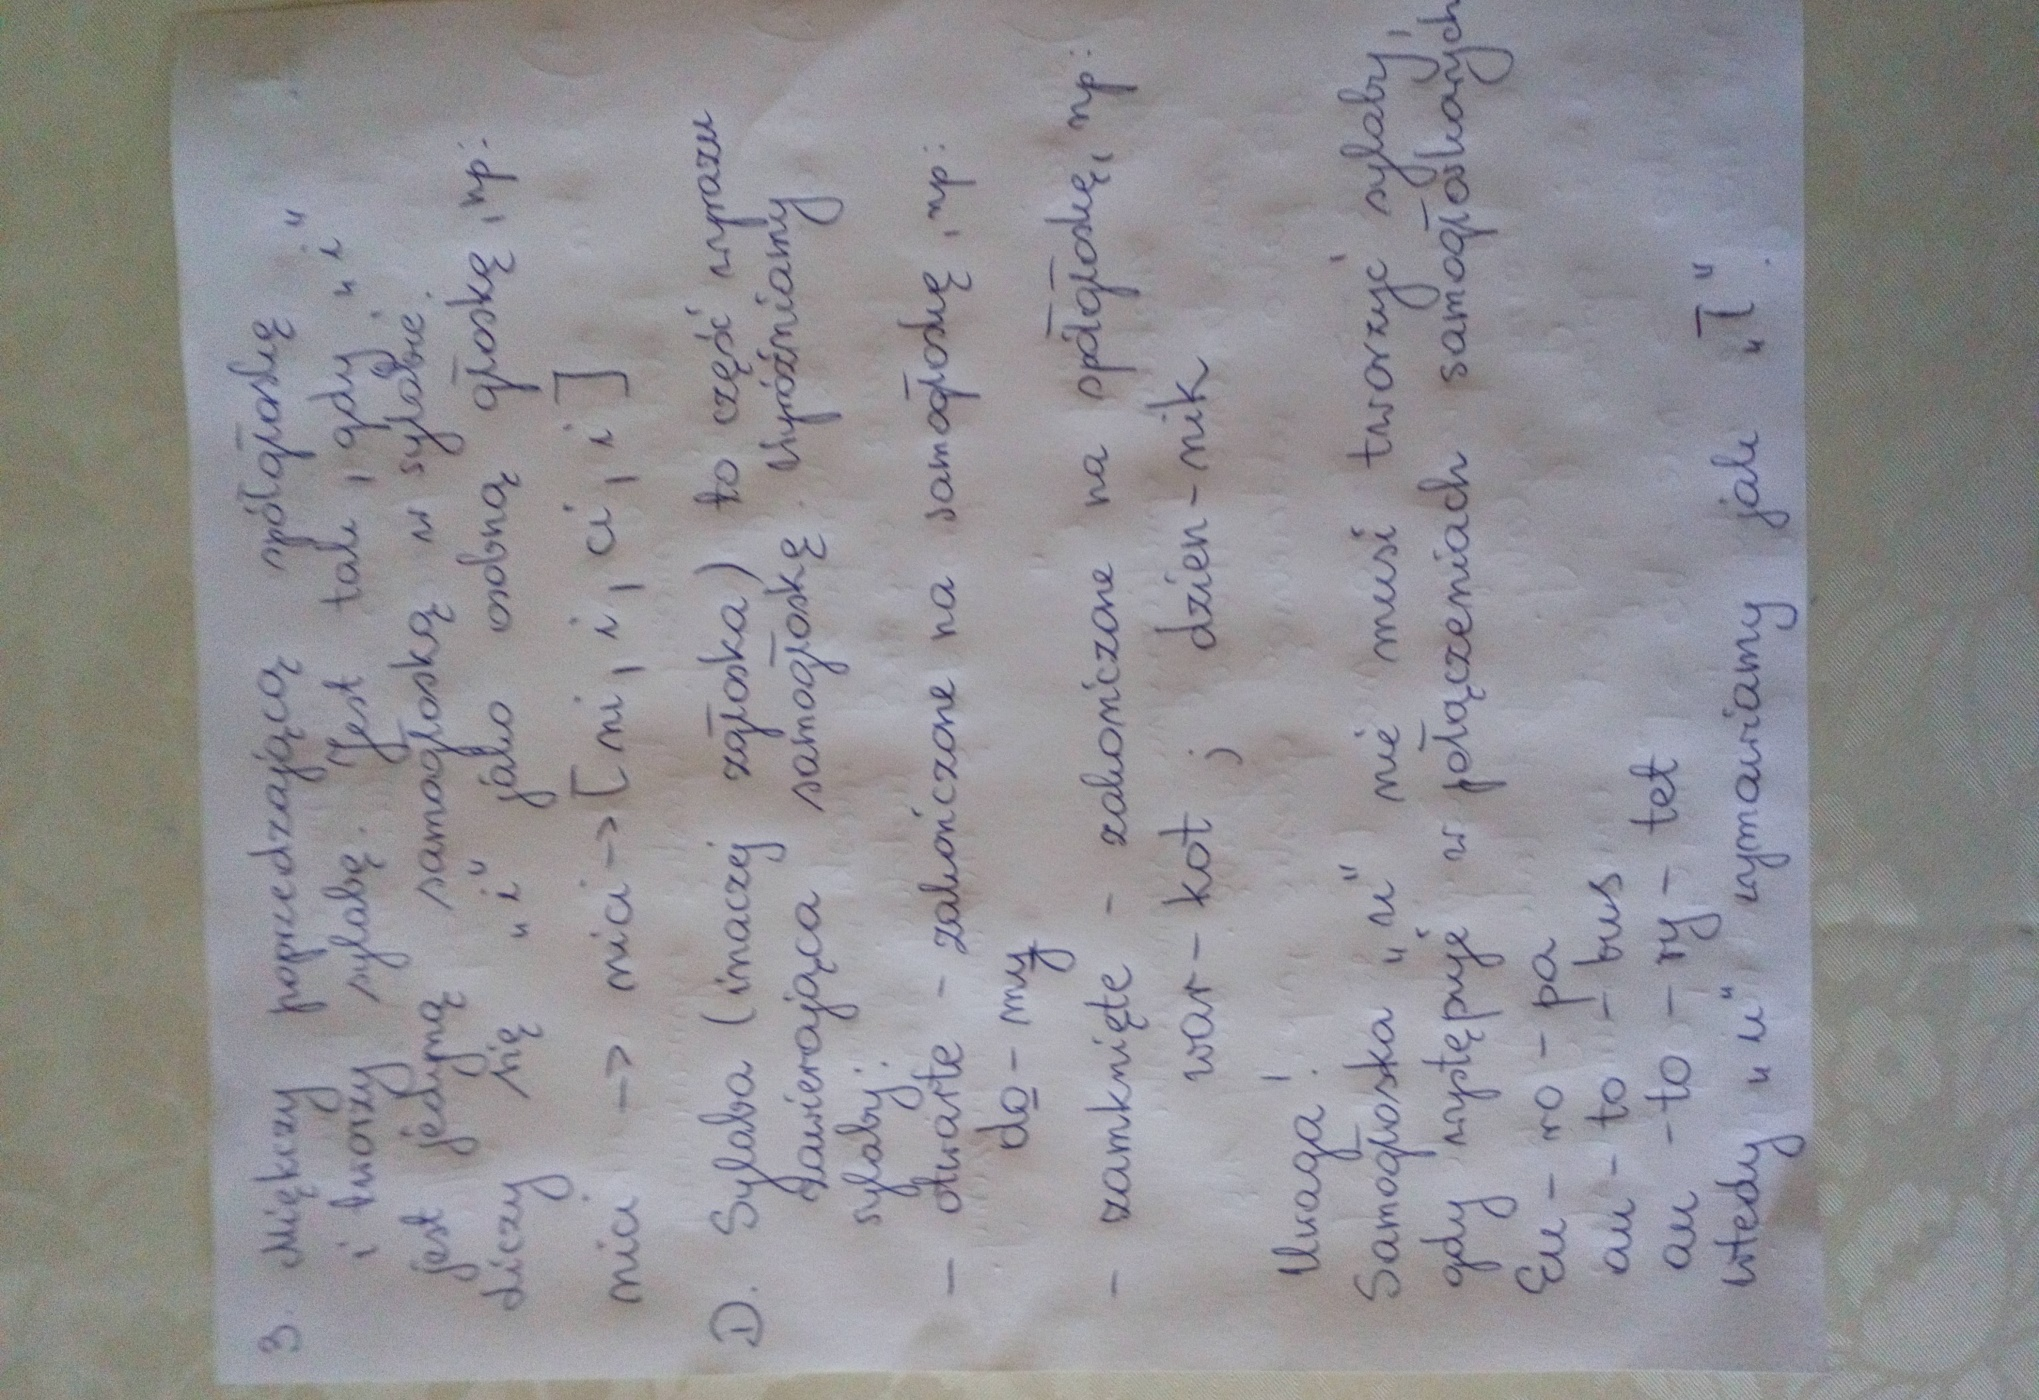 3. Miękczy poprzedzającą spółgłoskę
i tworzy sylabę. Jest tak, gdy „i"
jest jedyną samogłoską w sylabie.
Liczy się „i" jako osobną głoskę, np:
nici -> nici -> [ni, i, ci, i]
D. Sylaba (inaczej zgłoska) to część wyrazu
zawierająca samogłoskę. Wyróżniamy
sylaby:
- otwarte - zakończone na samogłoskę, np:
do - my
- zamknięte - zakończone na spółgłoskę, np:
war - kot ; dzien - nik
Uwaga!
Samogłoska „u" nie musi tworzyć sylaby,
gdy występuje w połączeniach samogłoskowych
Eu - ro - pa
au - to - bus
au - to - ry - tet
Wtedy „u" wymawiamy jak „ł".